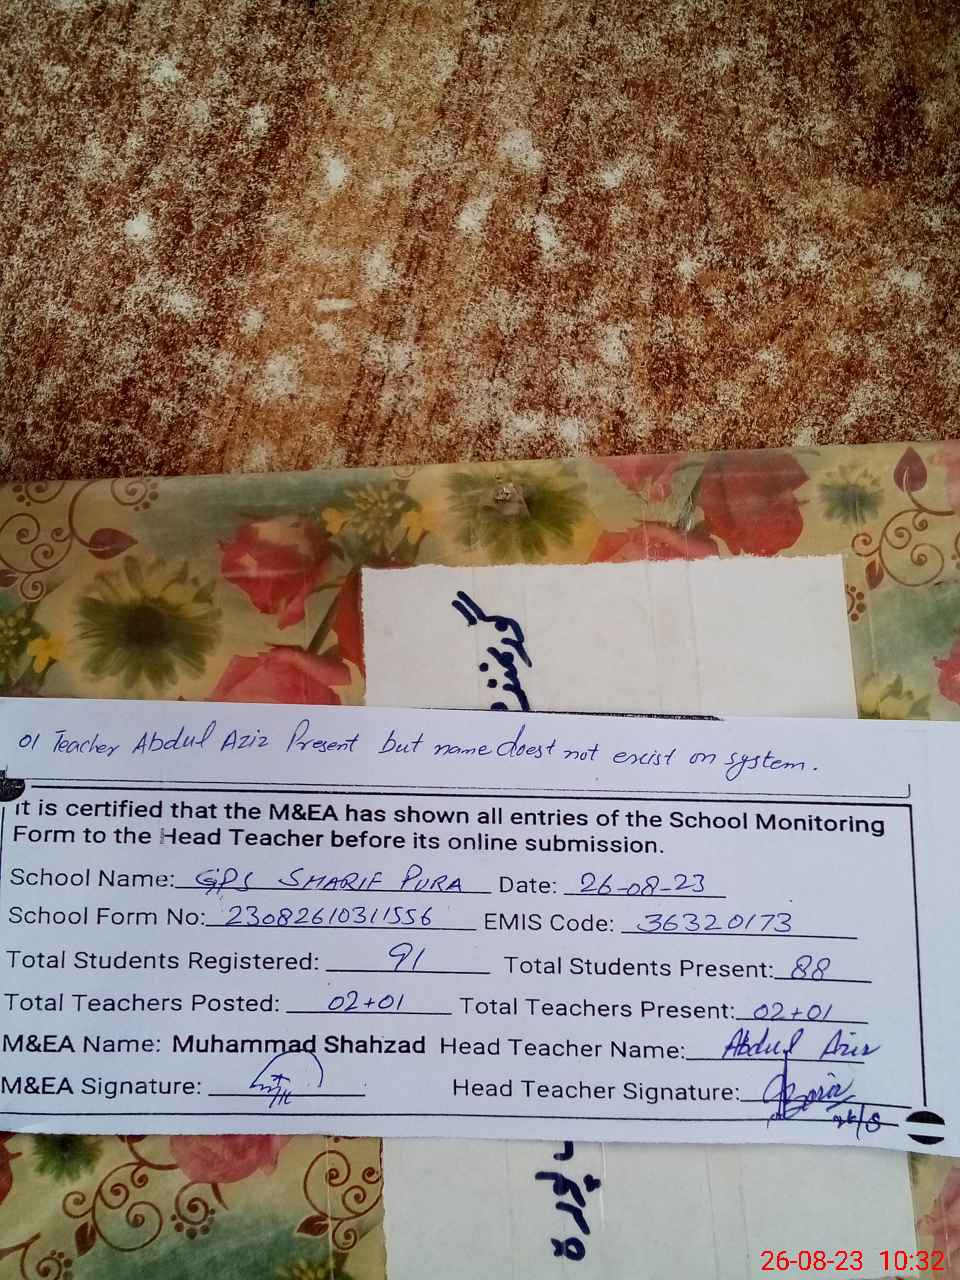 گورنمنٹ
01 Teacher Abdul Aziz Present but name doest not excist on system.
It is certified that the M&EA has shown all entries of the School Monitoring
Form to the Head Teacher before its online submission.
School Name: GPS SHARIF PURA Date: 26-08-23
School Form No: 23082610311556 EMIS Code: 36320173
Total Students Registered: 91 Total Students Present: 88
Total Teachers Posted: 02+01 Total Teachers Present: 02+01
M&EA Name: Muhammad Shahzad Head Teacher Name: Abdul Aziz
M&EA Signature: Head Teacher Signature:
26-08-23 10:32